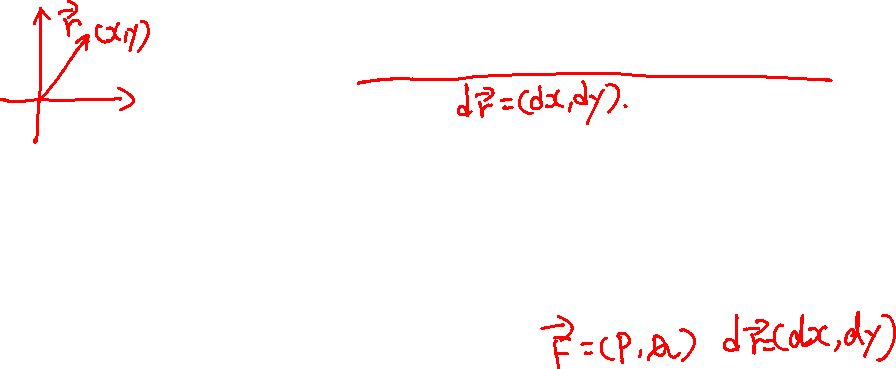 r⃗ (x,y)
dr⃗=(dx,dy).
F⃗=(P,Q) dr⃗=(dx,dy)